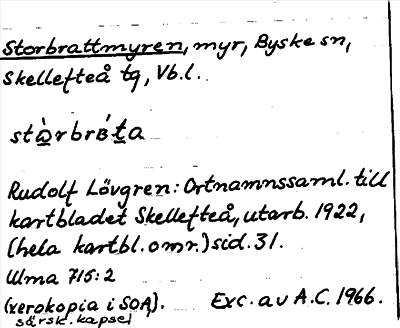 Storbrattmyren, myr, Byske sn,
Skellefteå tg, Vb.l.
Rudolf Lövgren: Ortnamnssaml. till
kartbladet Skellefteå, utarb. 1922,
(hela kartbl.omr.) sid. 31.
Ulma 715:2
(xerokopia i SOA). Exc. av A.C. 1966.
särsk. kapsel